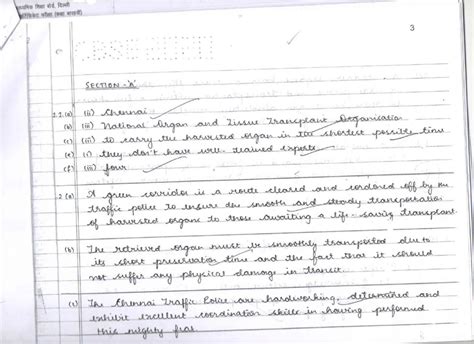 माध्यमिक शिक्षा बोर्ड, दिल्ली
3
CBSE
SECTION-'A'
(a) (ii) Chennai
(b) (iii) National Organ and Tissue Transplant Organisation
(c) (iii) to carry the harvested organ in the shortest possible time
(e) (i) they don't have well-trained experts
(f) (iii) four
2 (a) A green corridor is a route cleared and cordoned off by the
traffic police to ensure the smooth and steady transportation
of harvested organs to those awaiting a life-saving transplant.
(b) The retrieved organ must be smoothly transported due to
its short preservation time and the fact that it should
not suffer any physical damage in transit.
(c) The Chennai Traffic Police are hardworking, determined and
exhibit excellent coordination skills in having performed
this mighty feat.